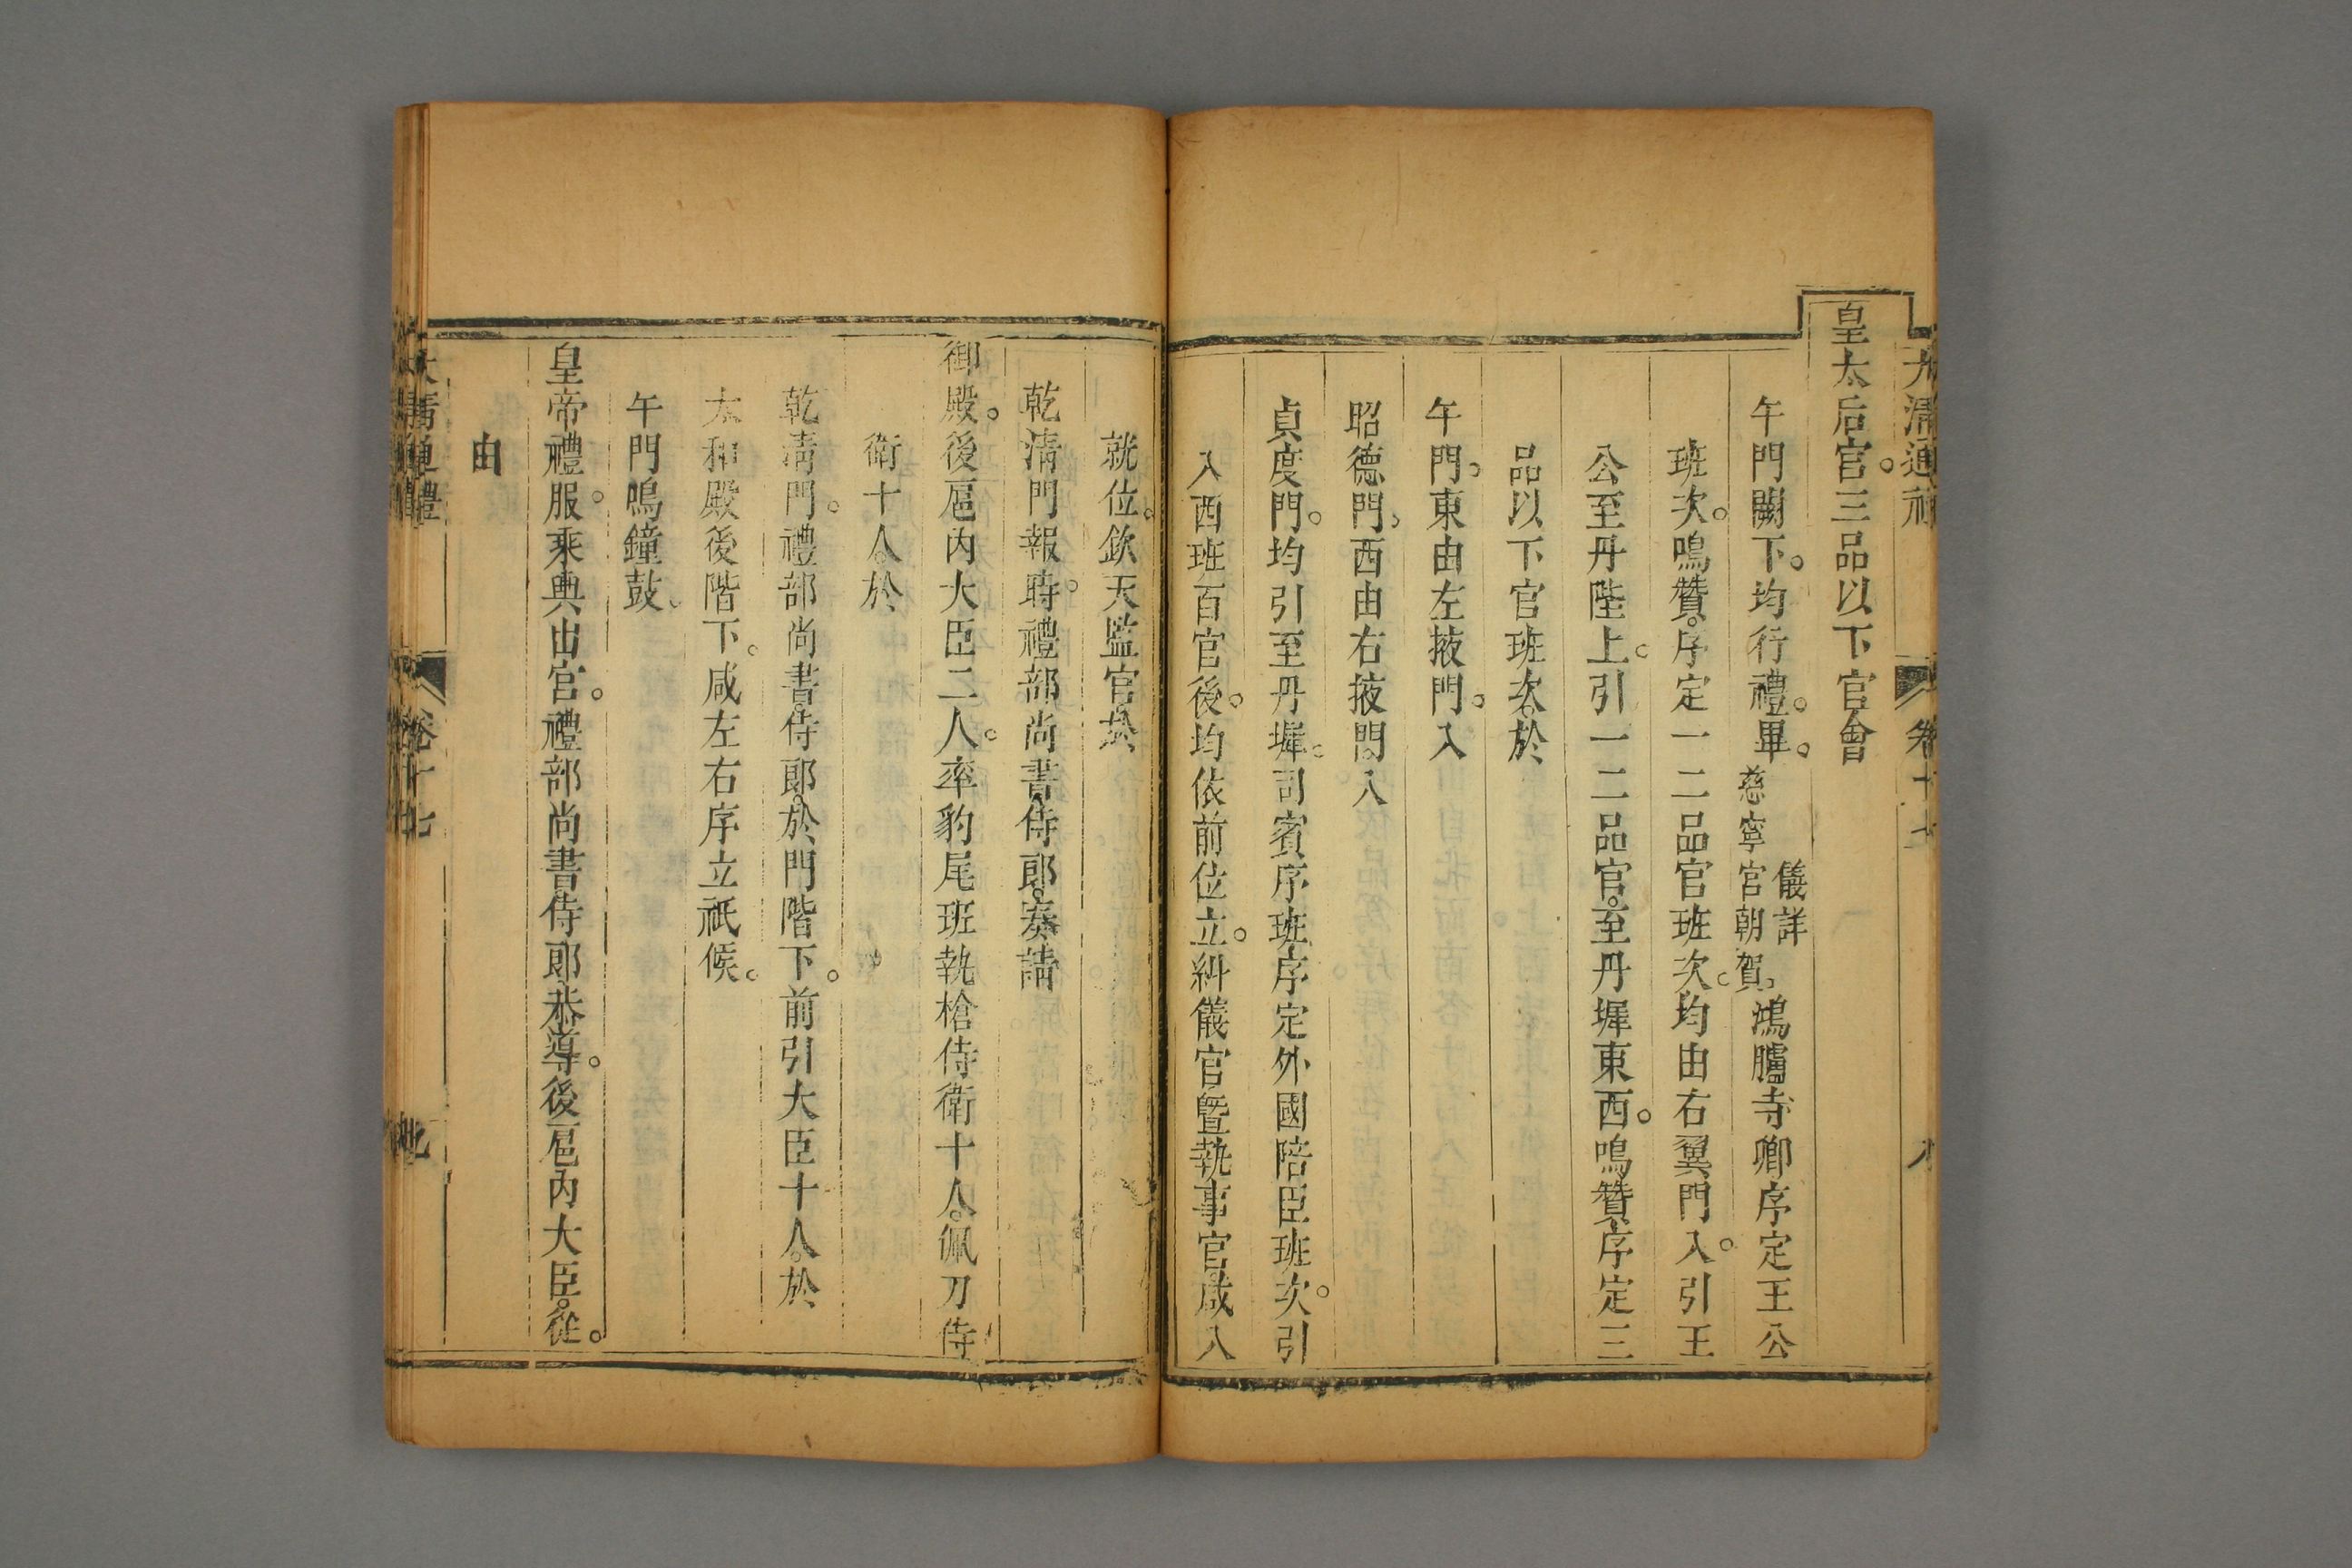 大清通禮 卷十七
皇太后宮。三品以下官會
午門闕下。均行禮。畢。儀詳慈寧宮朝賀。鴻臚寺卿序定王公
班次。鳴贊。序定一二品官班次。均由右翼門入。引王
公至丹陛上。引一二品官。至丹墀東西。鳴贊。序定三
品以下官班次。於
午門。東由左掖門。入
昭德門。西由右掖門。入
貞度門。均引至丹墀。司賓序班。序定外國陪臣班次。引
入西班百官後。均依前位立。糾儀官曁執事官。咸入
就位。欽天監官。於
乾淸門報時。禮部尚書侍郎。奏請
御殿。後扈內大臣二人。率豹尾班執槍侍衛十人。佩刀侍
衛十人。於
乾淸門。禮部尚書。侍郎。於門階下。前引大臣十人。於
太和殿後階下。咸左右序立祇候。
午門鳴鐘鼓。
皇帝禮服。乘輿出宮。禮部尚書侍郎恭導。後扈內大臣。從。
由
大清通禮 卷十七 九